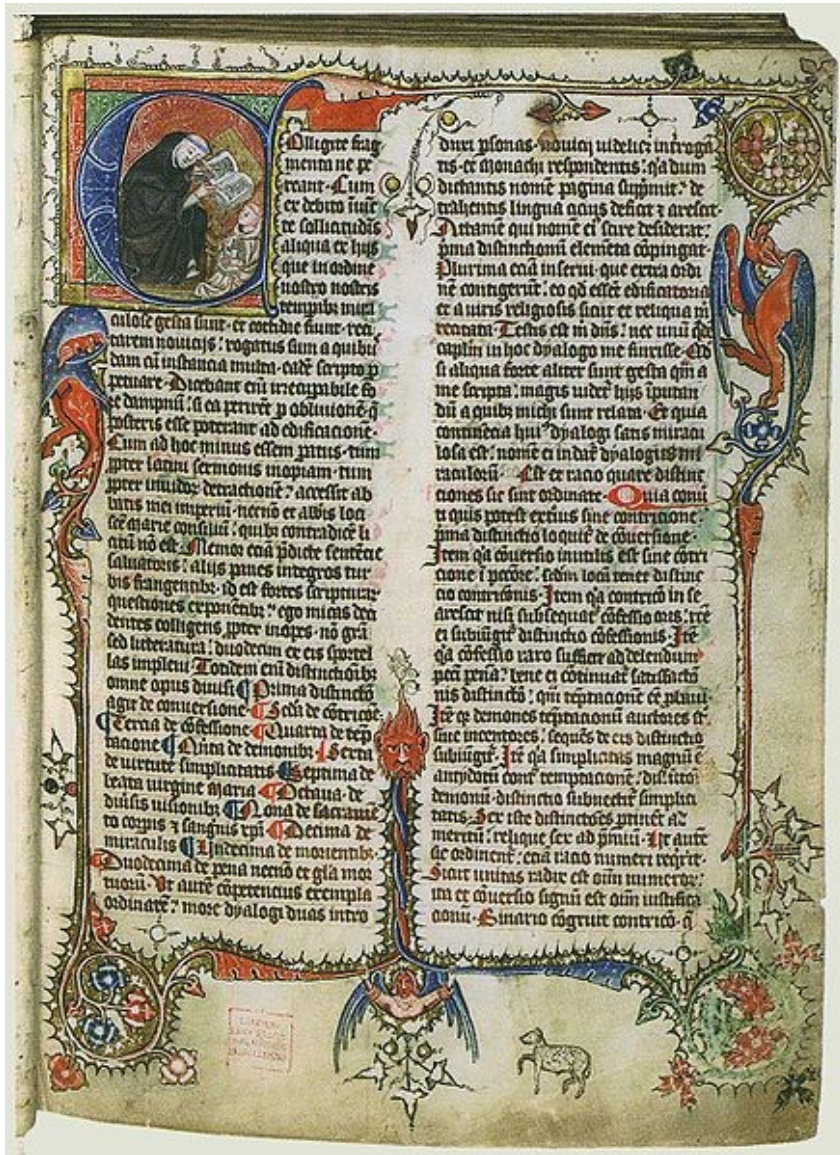 Colligite frag
menta ne pe
reant. Cum
ex debito iniūc
te sollicitudīs
aliqua ex hijs
que in ordine
nostro nostris
temporibꝫ mira
culose gesta sunt. et cottidie fiunt. reci
tarem novicijs: rogatus sum a quibus
dam cū instancia multa. eadē scripto ꝑ
petuare. Dicebant enī irrecuꝑabile fo
re dampnū. si ea perirēt ꝑ obliuionē q̄
posteris esse poterant ad edificacionē.
Cum ad hoc minus essem ꝑatus. tum
ꝓpter latini sermonis inopiam. tum
ꝓpter inuidoꝝ detractionē: accessit ab
batis mei imperiū. necnō et abbīs loci
scē Marie consiliū. quibꝫ contradicē li
citū nō est. Memor eciā p̄dicte sentēcie
saluatoris: alijs panes integros tur
bis frangentibꝫ. id est fortes scripturaꝝ
questiones exponentibꝫ: ego micas deci
dentes colligens ꝓpter inopes. nō grā
sed litteratura: duodecim ex eis sportel
las impleui. Totidem enī distinctionibꝫ
omne opus diuisi. Prima distinctō
agit de conversione. Scdā de cōtricōe.
Tercia de cōfessione. Quarta de tēp
tacione. Quīta de demonibꝫ. Sexta
de virtute simplicitatis. Septima de
beata virgine Maria. Octaua. de
diuīsis visionibꝫ. Nona de sacramē
to corpīs ⁊ sangnīs xpī. Decima de
miraculis. Undecima de morientibꝫ.
Duodecima de pena necnō et glā mor
tuoꝝ. Ut autē cōpetencius exempla
ordinarē: more dyalogi duas intro
duxi ꝑsonas. novicij videlicꝫ introgā
tis. et monachi respondentis. qa dum
dictantis nomē pagina supp̄mit: de
trahentis lingua cicius deficit ⁊ arescit.
Attamē qui nomē ei scire desiderat:
p̄ma distinctionū elemēta cōpingat.
Plurima eciā inserui. que extra ordi
nē contigerūt. eo qd essēt edificatoria
et a viris religiosis sicut et reliqua m̄
recitata. Testis est m̄ dn̄s: nec unū qdē
caplm̄ in hoc dyalogo me finxisse. Qd
si aliqua forte aliter sunt gesta qm̄ a
me scripta: magis videt̄ hijs īputan
dū a quibꝫ michi sunt relata. Et quia
continēcia huī dyalogi satis miracu
losa est: nomē ei indatē dyalogus mi
raculoꝝ. Est et racio quare distinc
tiones sic sint ordinate. Quia conū
ti quis potest exterius sine contricione:
p̄ma distinctio loquit̄ de cōversione.
Item qa cōversio inutilis est sine cōtri
cione ī pctōre: scdm̄ locū tenet distinc
cio contricionis. Item qa contricō in se
arescit nisi subsequat̄ cōfessio oris: rc̄te
ei subiūgit̄ distinctio cōfessionis. Itē
qa cōfessio raro sufficit ad delendum
pctī penā: bene ei cōtinuat̄ satisfactō
nis distinctō: qm̄ tēptacionē cē pluviī.
Itē qꝛ demones tēptacionū auctores st̄
sive incentores: sequēs de eis distinctio
subiūgit̄. Itē qa simplicitas magnū ē
antydotū contᷓ temptacionē: distinctōi
demonū. distinctio subnectit̄ simplici
tatis. Sex iste distinctōes ꝑtinēt ad
meritū: relique sex ad p̄miū. Ut autē
sic ordinent̄. eciā racio numeri reqrit̄.
Sicut unitas radix est oīm numeroꝝ:
ita et cōversio signū est oīm iustifica
cionū. Binario cōgruit contricō. q̄